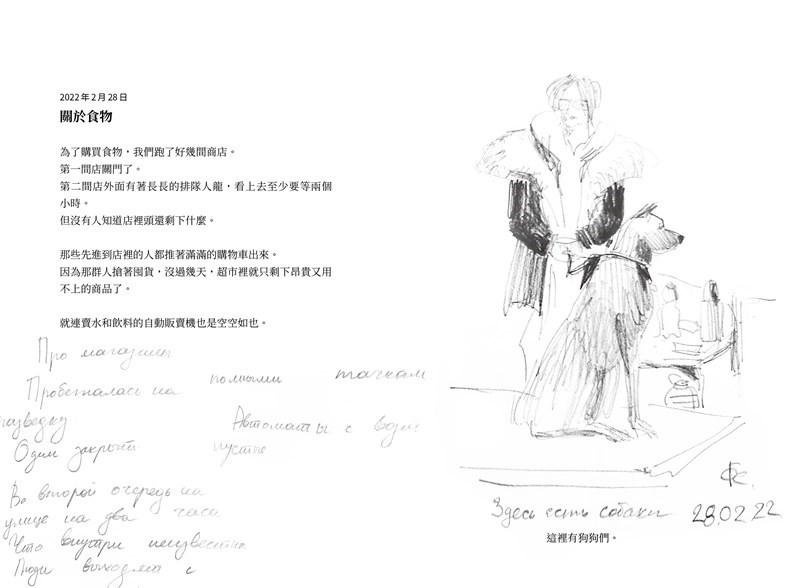 2022 年 2 月 28 日
關於食物
為了購買食物，我們跑了好幾間商店。
第一間店關門了。
第二間店外面有著長長的排隊人龍，看上去至少要等兩個
小時。
但沒有人知道店裡頭還剩下什麼。
那些先進到店裡的人都推著滿滿的購物車出來。
因為那群人搶著囤貨，沒過幾天，超市裡就只剩下昂貴又用
不上的商品了。
就連賣水和飲料的自動販賣機也是空空如也。
Про магазины
Пробежалась на
разведку
Один закрыт
Во второй очередь на
улице на два часа
Что внутри неизвестно
Люди выходят с
полными тачками
Автоматы с водой
пустые
Здесь есть собаки 28.02.22
這裡有狗狗們。